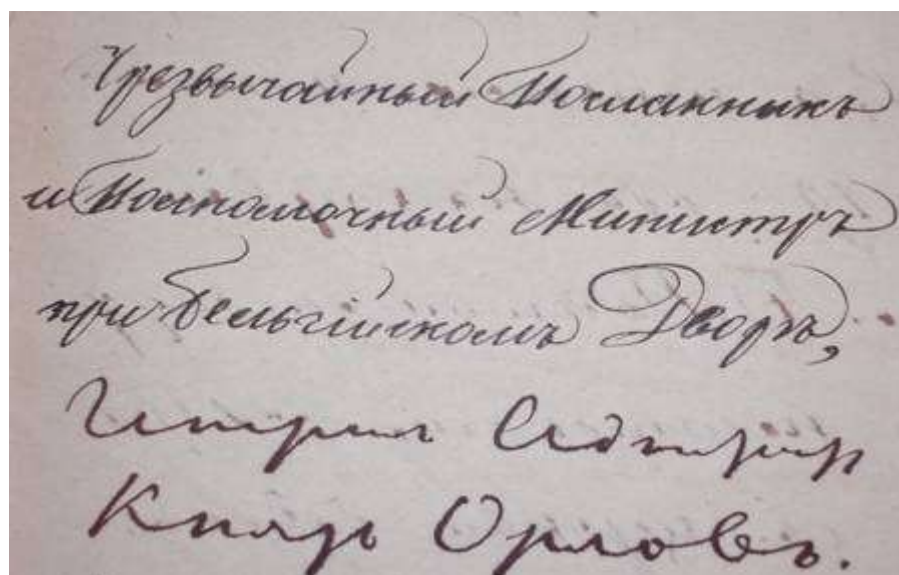 Чрезвычайный Посланникъ
и Полномочный Министръ
при Бельгійскомъ Дворѣ,
Генералъ Адъютантъ
Князь Орловъ.